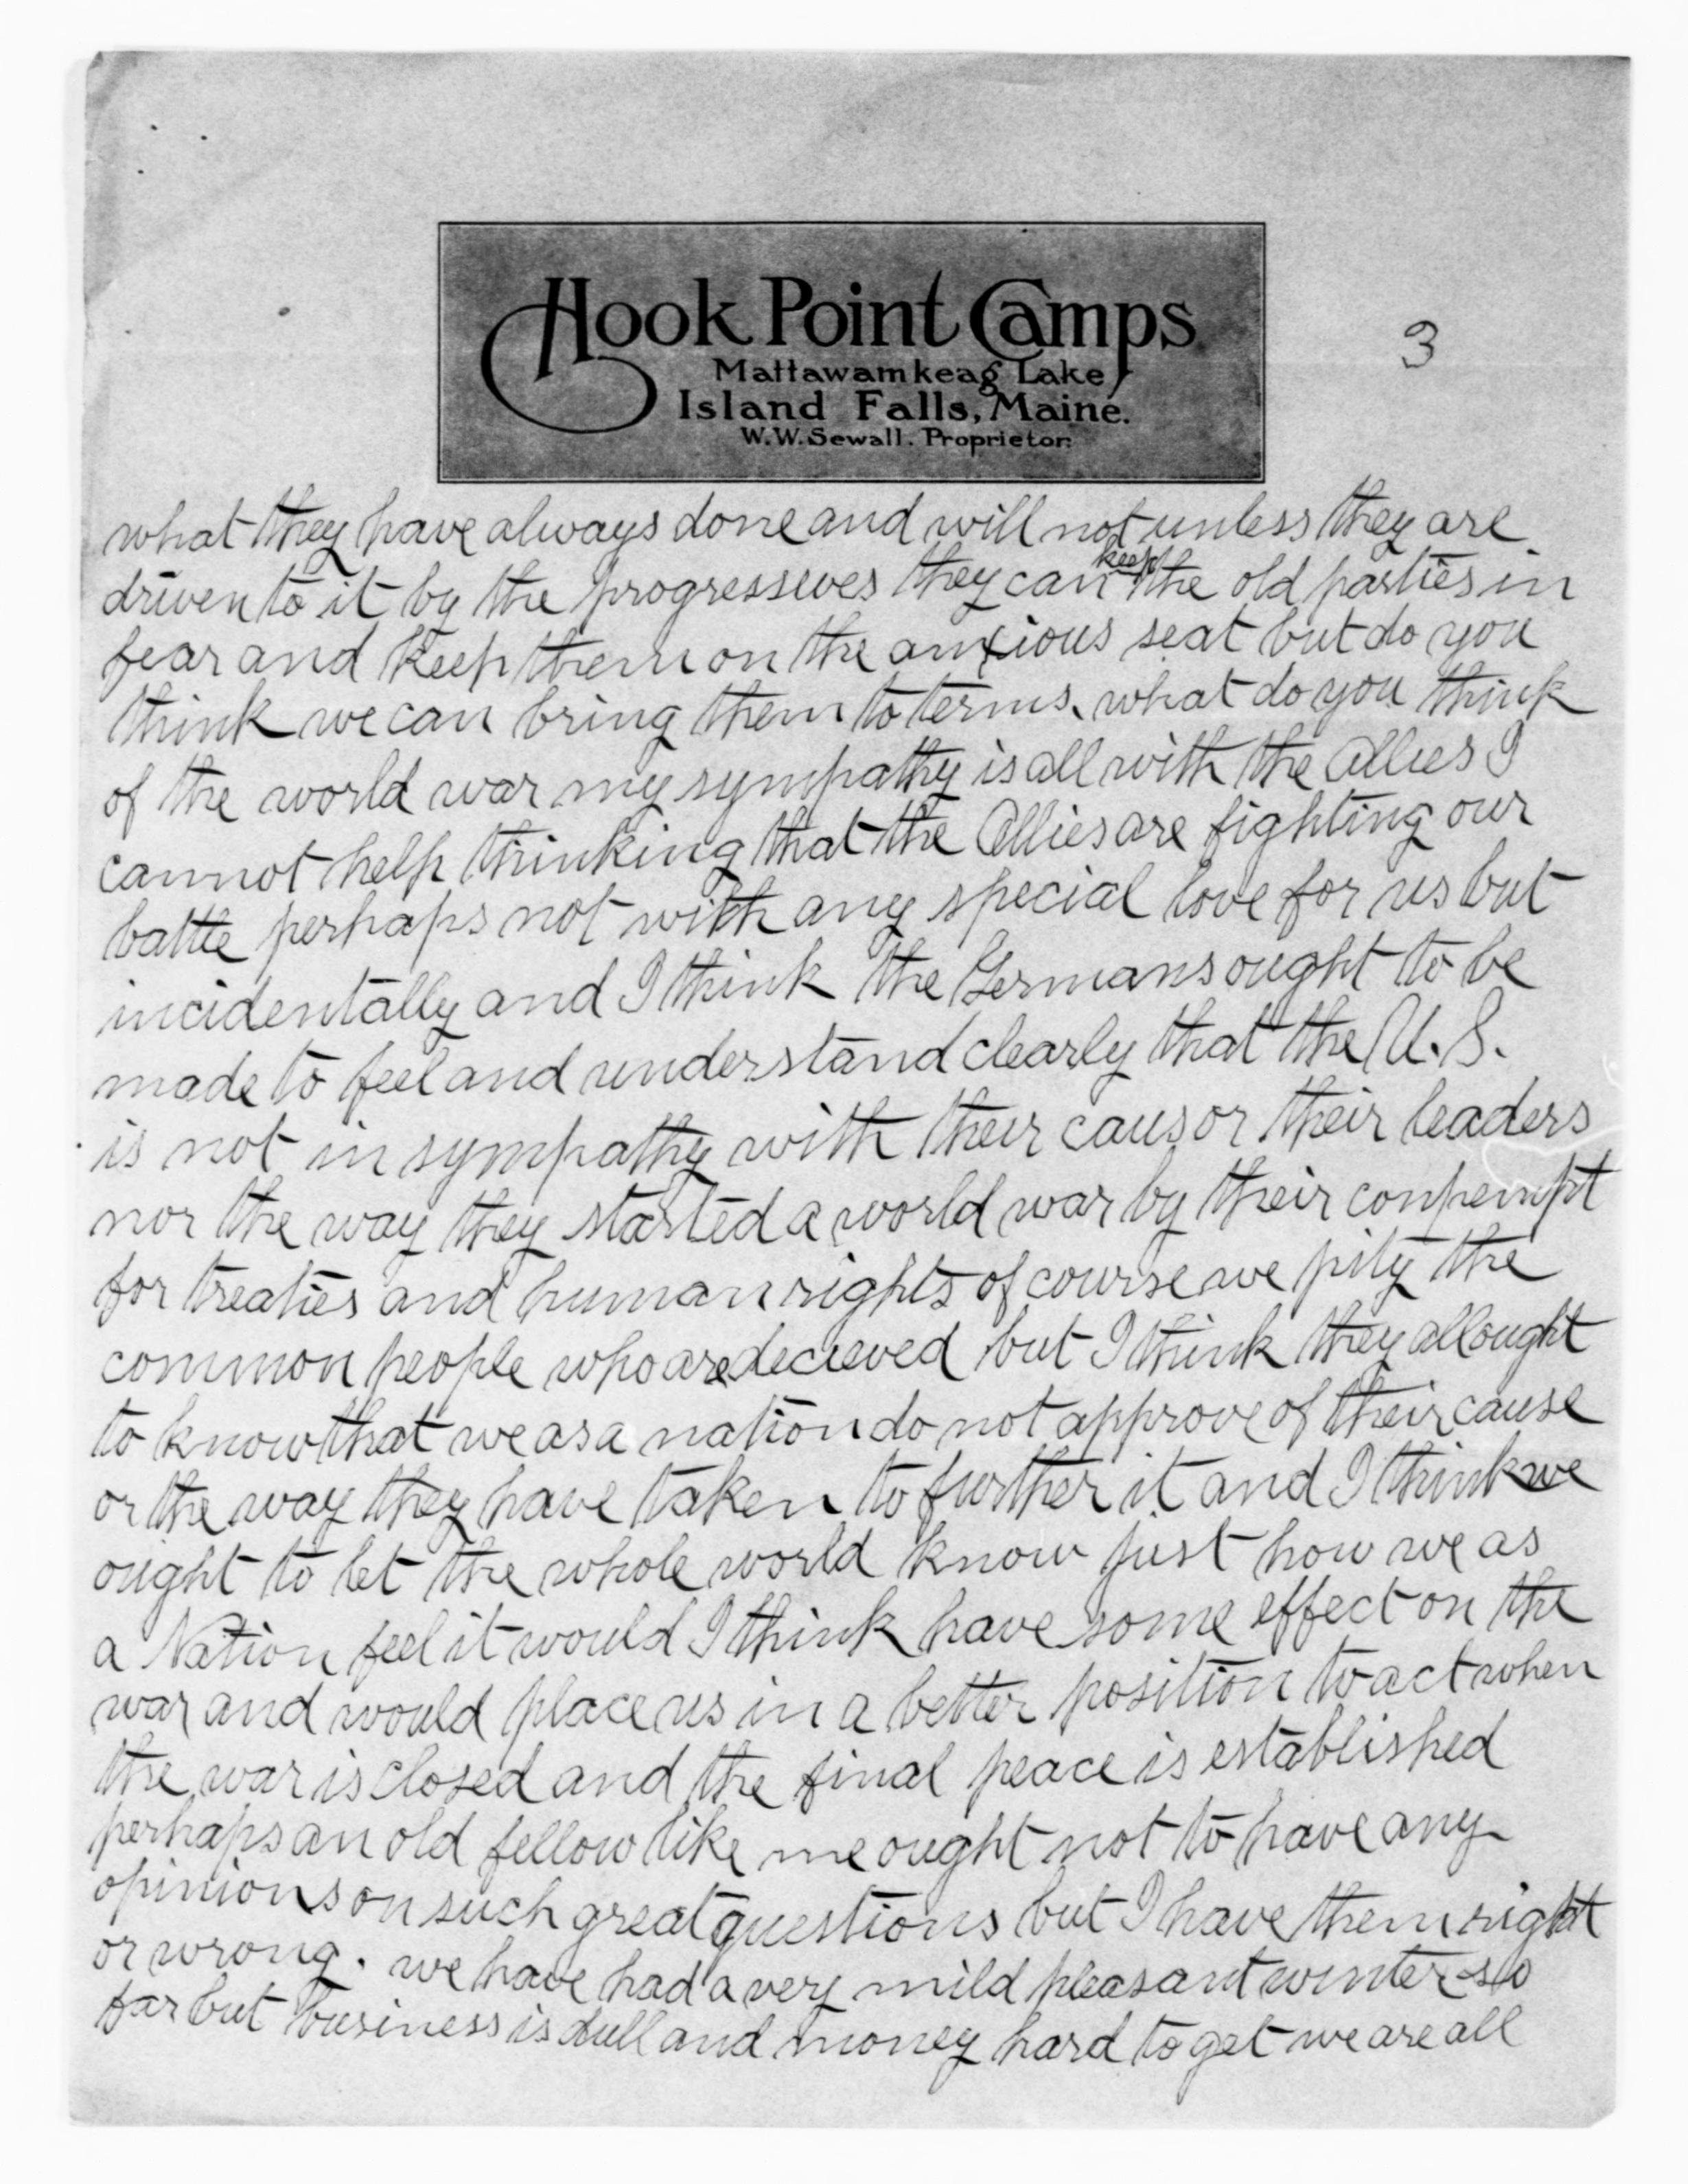 Hook Point Camps
Mattawamkeag Lake
Island Falls, Maine.
W.W. Sewall. Proprietor.
3
what they have always done and will not unless they are
driven to it by the progresseves they can keep the old parties in
fear and keep them on the anxious seat but do you
think we can bring them to terms. what do you think
of the world war my sympathy is all with the Allies I
cannot help thinking that the Allies are fighting our
battle perhaps not with any special love for us but
incidentally and I think the Germans ought to be
made to feel and understand clearly that the U.S.
is not in sympathy with their caus or their leaders
nor the way they started a world war by their conpempt
for treaties and human rights of course we pity the
common people who are decieved but I think they all ought
to know that we as a nation do not approve of their cause
or the way they have taken to further it and I think we
ought to let the whole world know just how we as
a Nation feel it would I think have some effect on the
war and would place us in a better position to act when
the war is closed and the final peace is established
perhaps an old fellow like me ought not to have any
opinions on such great questions but I have them right
or wrong. we have had a very mild pleasant winter so
far but business is dull and money hard to get we are all